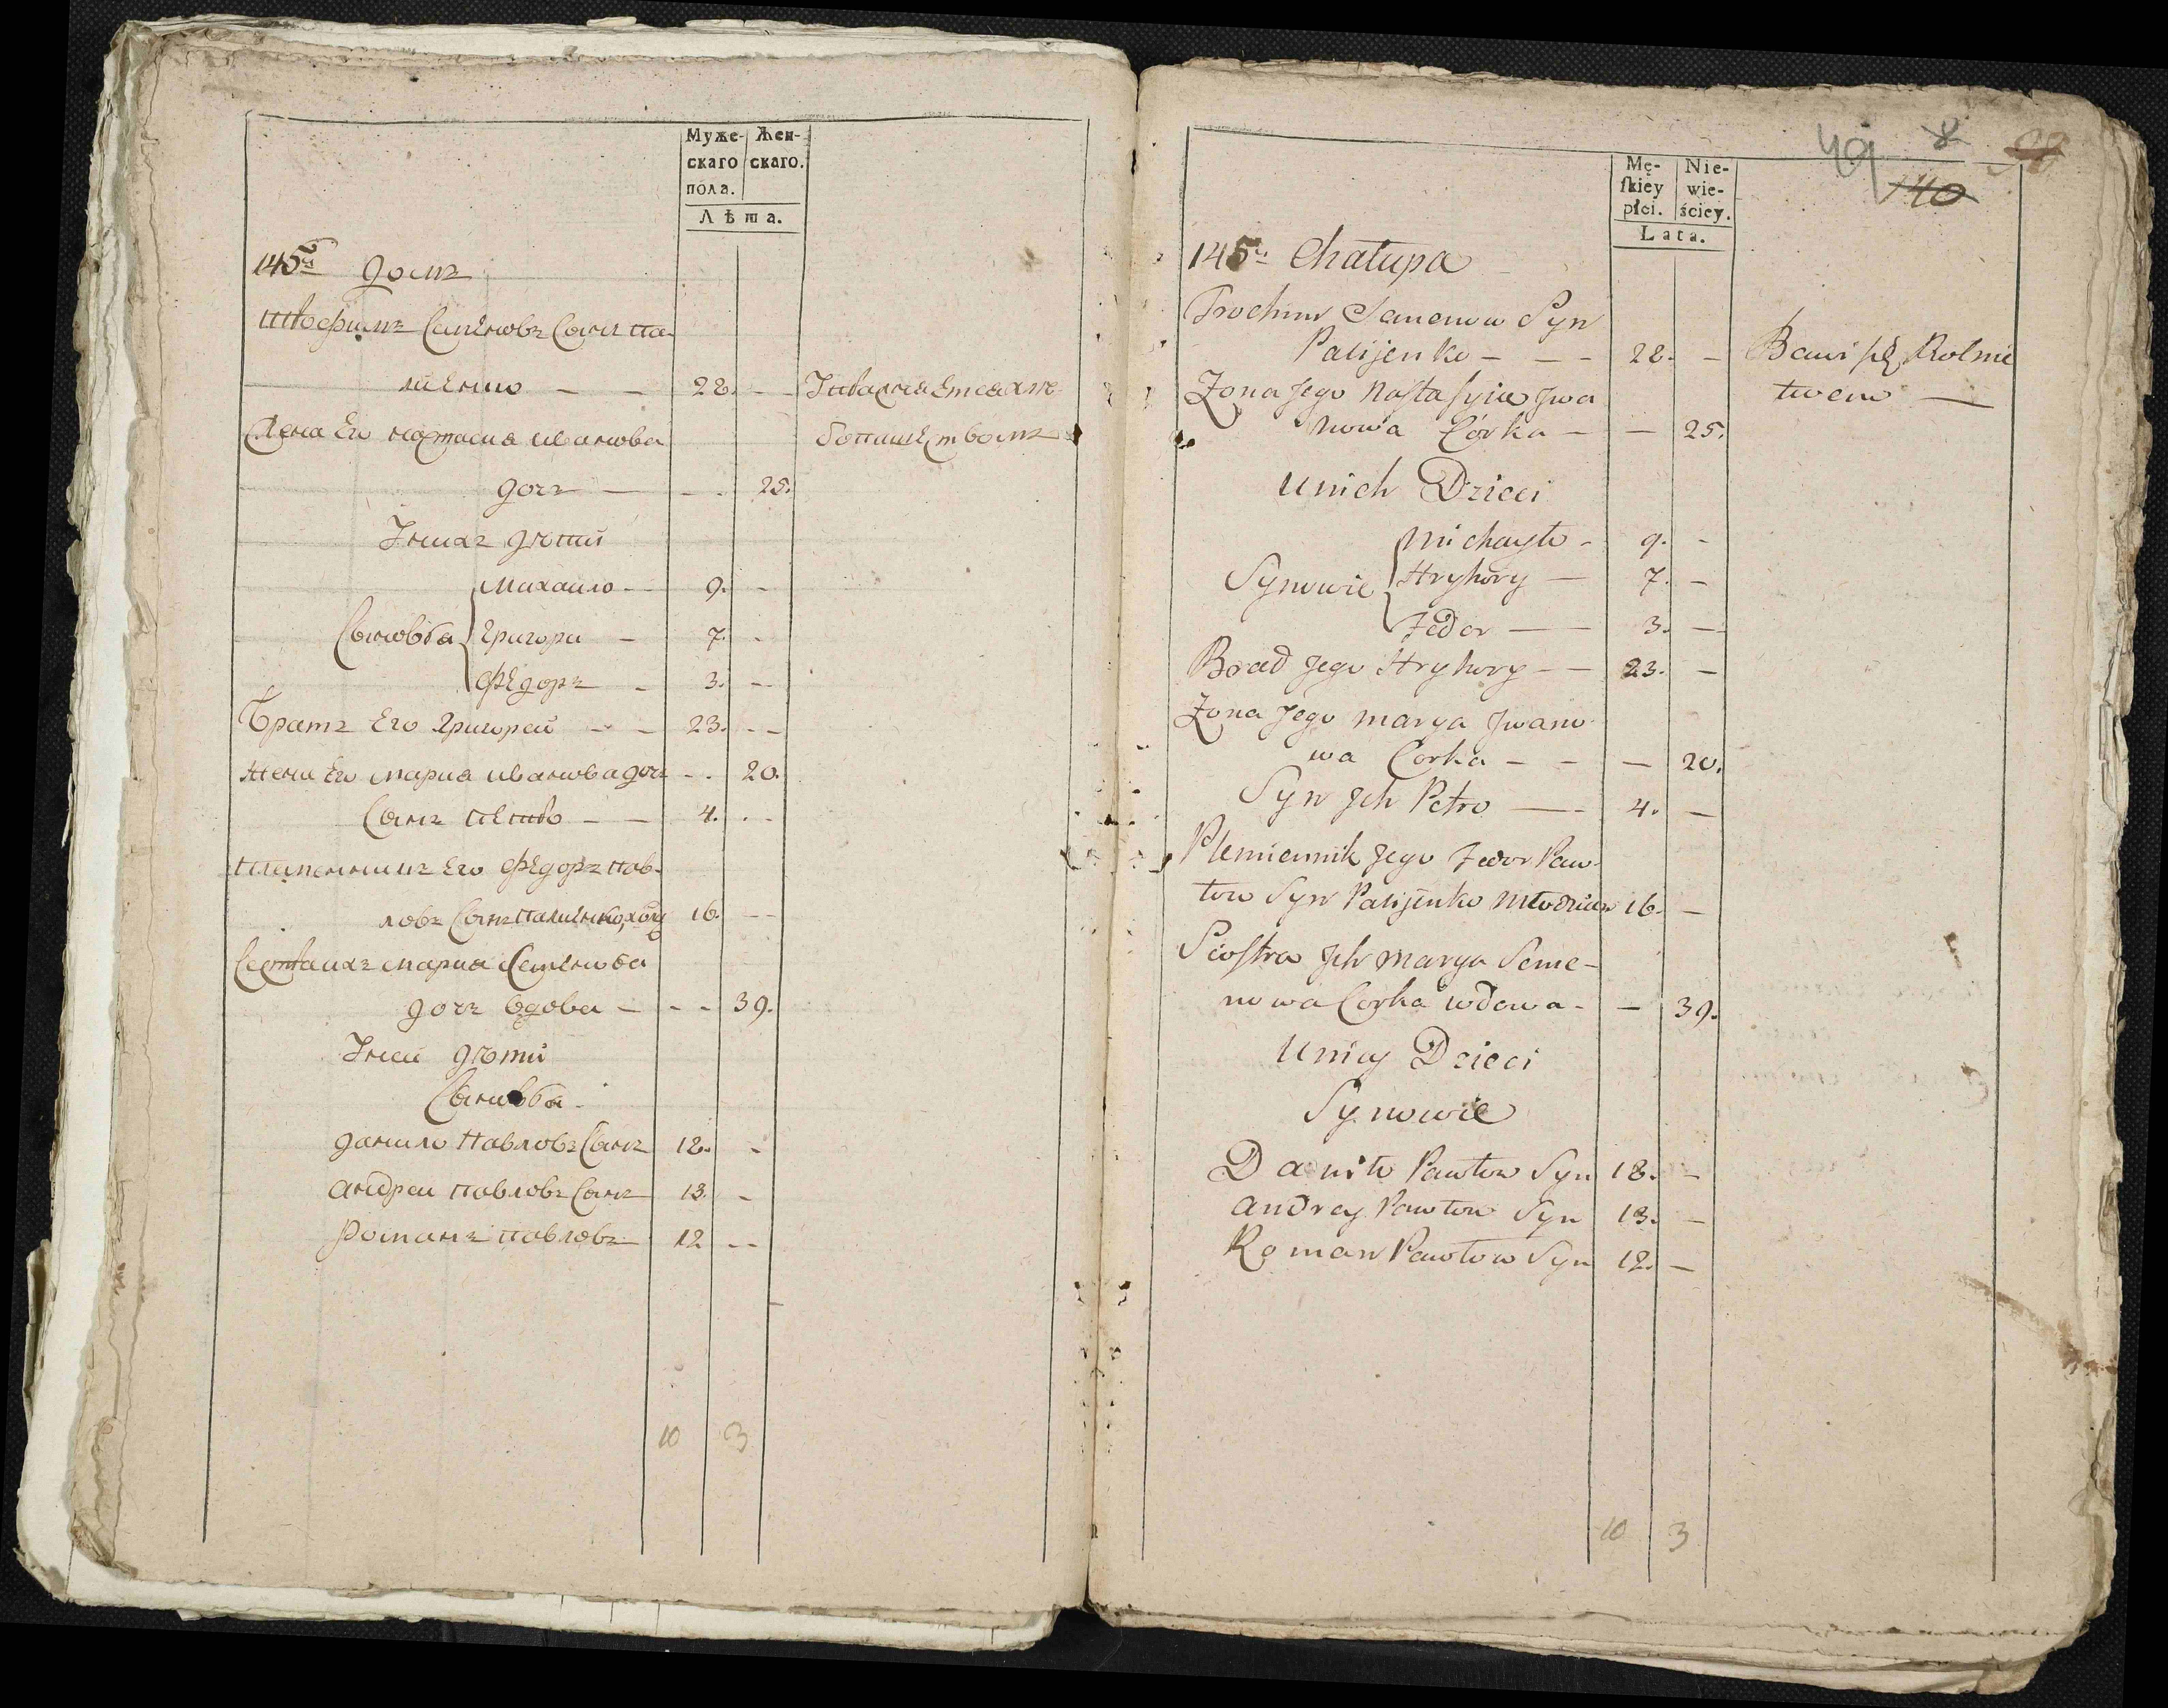 Муже-
скаго
пола.
Жен-
скаго.
Лѣта.
145й домъ
Трофимъ Семеновъ Сынъ па-
лиенко — — 28. — Упражняется хле-
Жена Его настасия иванова
бопашеством
дочъ — — 25.
У нихъ дѣтии
Михаило — 9. —
Сыновья Григори — 7. —
Федоръ — 3. —
Братъ Его Григореи — — 23. — —
Жена Его мариа ивановадочъ — 20.
Сынъ петро — — 4. — —
племенникъ Его Федоръ пав-
ловъ Сынъ палиенко, хол: 16. — —
Сестра ихъ мариа Семенова
дочъ вдова — — — 39.
У неи дѣтии
Сыновья
данило павловъ Сынъ 18. —
андреи павловъ Сынъ 13. —
романъ павловъ 12 — —
10 3
49 8 98
140
Mę-
ſkiey
płci.
Nie-
wie-
ściey.
Lata.
145a Chałupa
Trochim Semenow Syn
Palijenko — — — 28. — Bawi ſię Rolnic
Zona Jego Nastaſyia Jwa
twem —
nowa Córka — — 25.
U nich Dzieci
Michayło — 9. —
Synowie Hryhory — 7. —
Fedor — — 3. —
Brad Jego Hryhory — — 23. —
Zona Jego Marya Jwano
wa Corka — — — 20.
Syn Jch Petro — — 4. —
Plemiennik Jego Fedor Paw-
łow Syn Palijenko Młodzian 16. —
Siostra Jch Marya Seme-
nowa Corka wdowa — — 39.
U niey Dzieci
Synowie
Daniło Pawłow Syn 18. —
Andrey Pawłow Syn 13. —
Roman Pawłow Syn 12. —
10 3